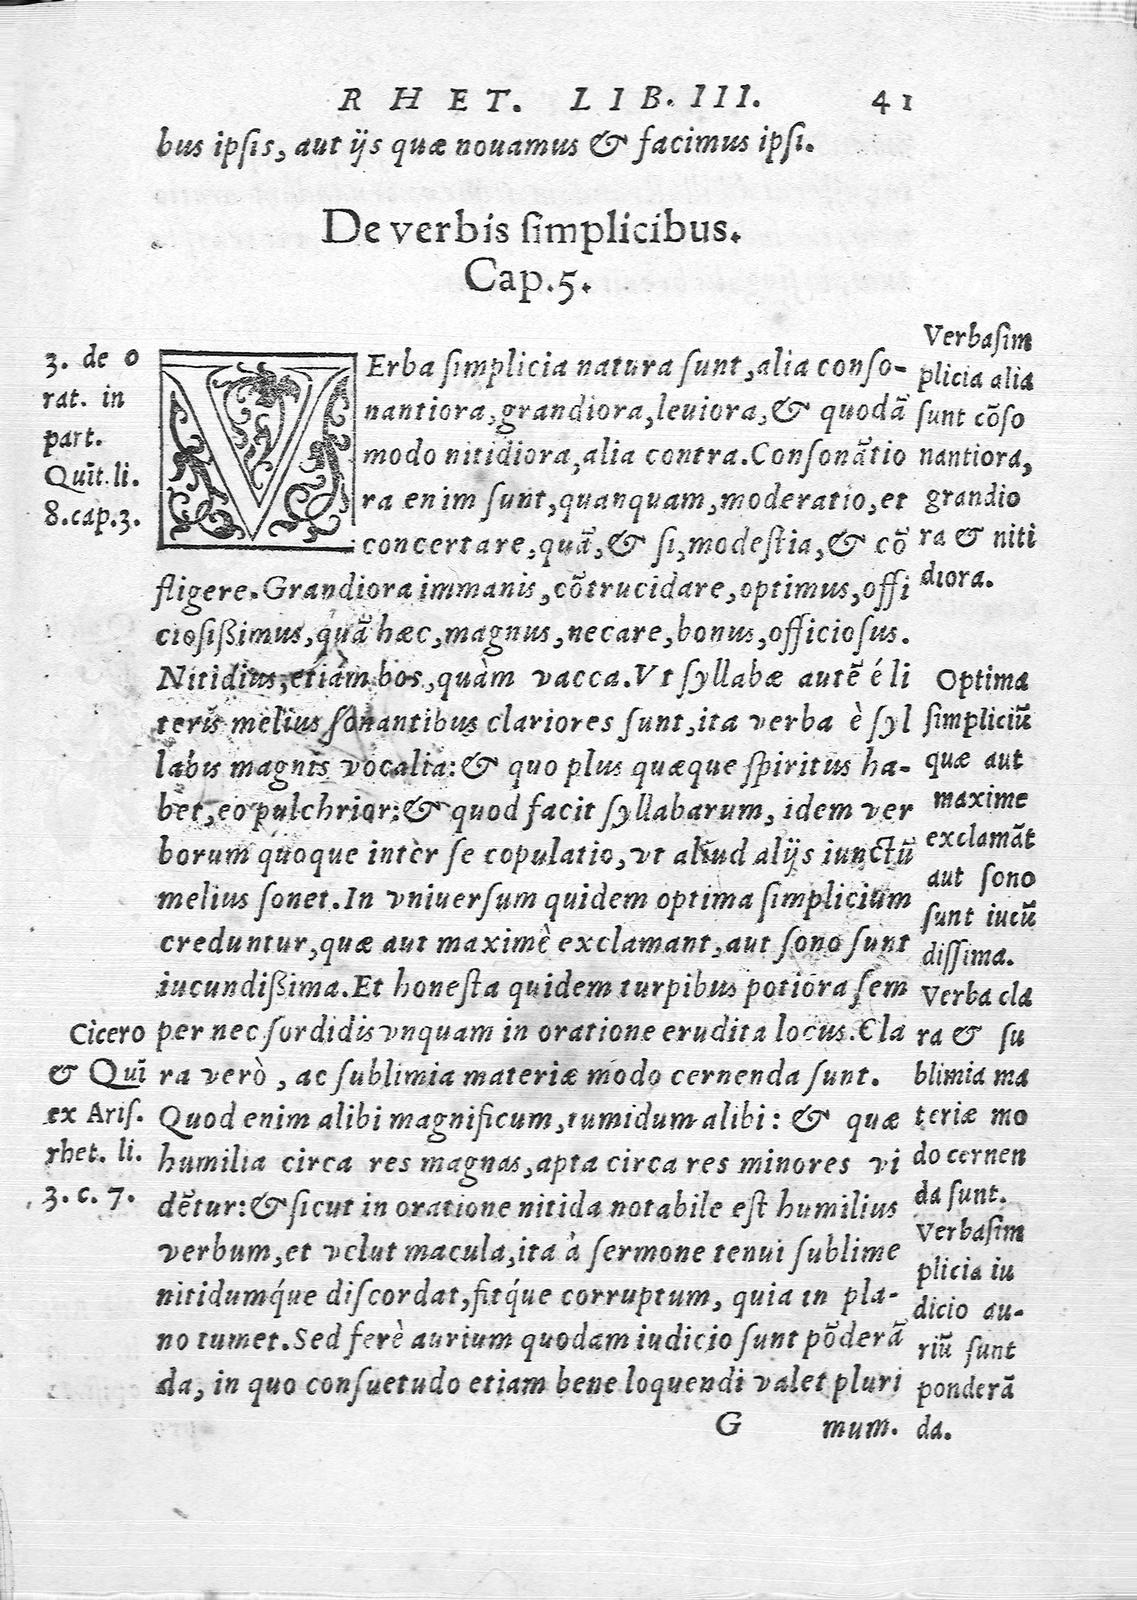 RHET. LIB. III. 41
bus ipſis, aut ijs quæ nouamus & facimus ipſi.
De verbis ſimplicibus.
Cap. 5.
3. de o
rat. in
part.
Quīt. li.
8. cap. 3.
VErba ſimplicia natura ſunt, alia conſo-
nantiora, grandiora, leuiora, & quodā
modo nitidiora, alia contra. Conſonātio
ra enim ſunt, quanquam, moderatio, et
concertare, quā, & ſi, modeſtia, & cō
fligere. Grandiora immanis, cōtrucidare, optimus, offi
cioſißimus, quā hæc, magnus, necare, bonus, officioſus.
Nitidius, etiám bos, quàm vacca. Vt ſyllabæ autē é li
teris melius ſonantibus clariores ſunt, ita verba è ſyl
labis magnis vocalia: & quo plus quæque ſpiritus ha-
bet, eo pulchrior: & quod facit ſyllabarum, idem ver
borum quoque inter ſe copulatio, vt aliud alijs iunctū
melius ſonet. In vniuerſum quidem optima ſimplicium
creduntur, quæ aut maximè exclamant, aut ſono ſunt
iucundißima. Et honeſta quidem turpibus potiora ſem
per nec ſordidis vnquam in oratione erudita locus. Cla
ra verò, ac ſublimia materiæ modo cernenda ſunt.
Quod enim alibi magnificum, tumidum alibi: & quæ
humilia circa res magnas, apta circa res minores vi
dētur: & ſicut in oratione nitida notabile eſt humilius
verbum, et velut macula, ita à ſermone tenui ſublime
nitidumq́ue diſcordat, fitq́ue corruptum, quia in pla-
no tumet. Sed ferè aurium quodam iudicio ſunt pōderā
da, in quo conſuetudo etiam bene loquendi valet pluri
G mum.
Cicero
& Quī
ex Ariſ.
rhet. li.
3. c. 7.
Verbaſim
plicia alia
ſunt cōſo
nantiora,
grandio
ra & niti
diora.
Optima
ſimpliciū
quæ aut
maxime
exclamāt
aut ſono
ſunt iucū
diſſima.
Verba cla
ra & ſu
blimia ma
teriæ mo
do cernen
da ſunt.
Verbaſim
plicia iu
dicio au-
riū ſunt
ponderā
da.